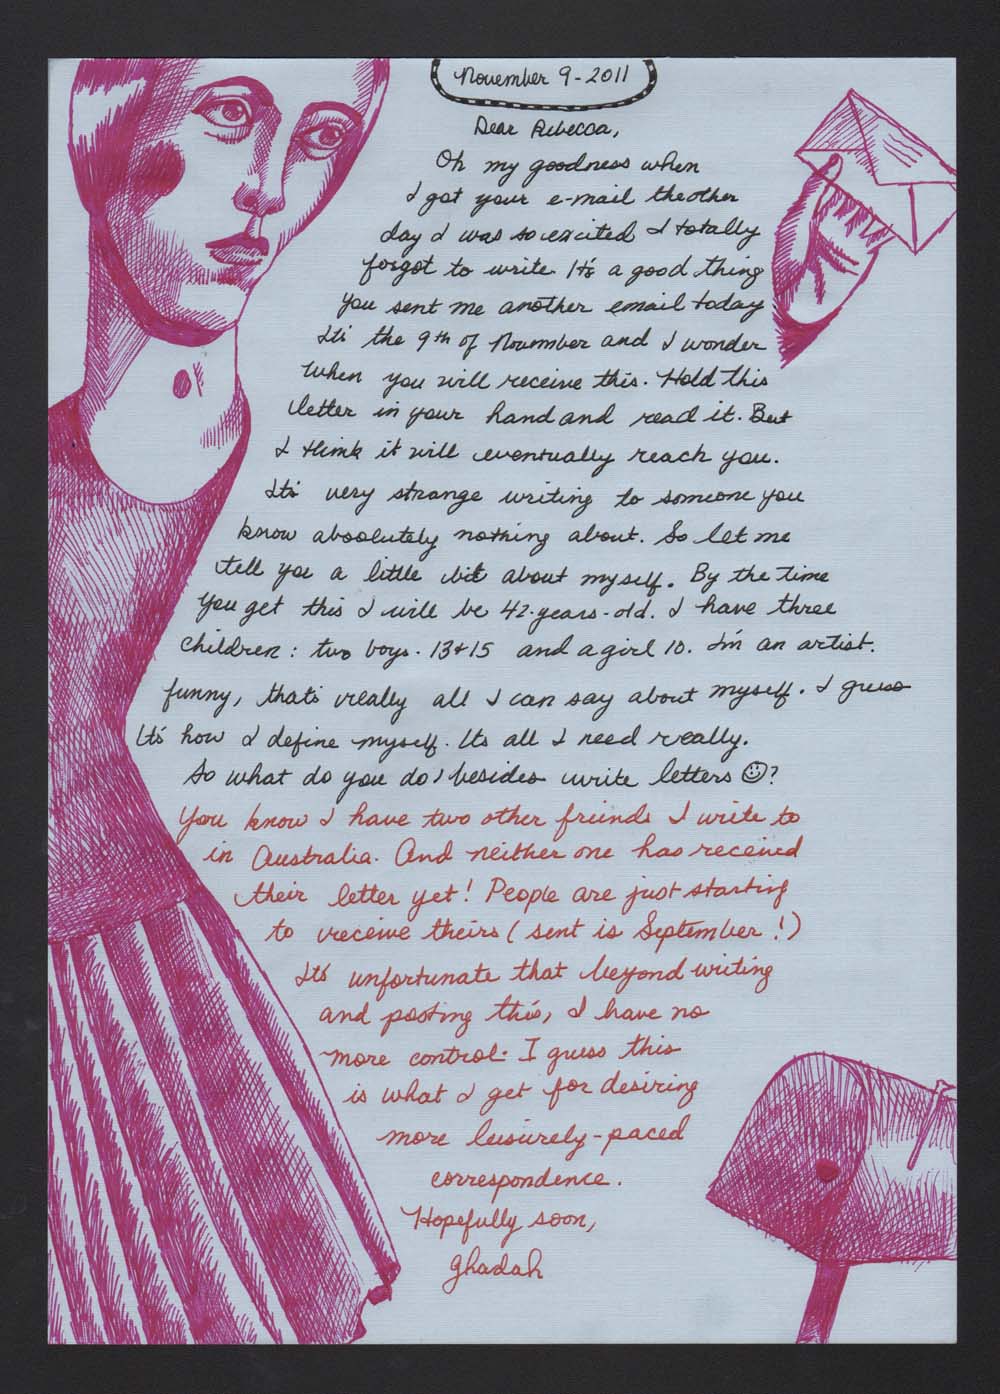 November 9-2011
Dear Rebecca,
Oh my goodness when
I got your e-mail the other
day I was so excited I totally
forgot to write. It's a good thing
you sent me another email today
It's the 9th of November and I wonder
when you will receive this. Hold this
letter in your hand and read it. But
I think it will eventually reach you.
It's very strange writing to someone you
know absolutely nothing about. So let me
tell you a little bit about myself. By the time
you get this I will be 42-years-old. I have three
children: two boys. 13+15 and a girl 10. I'm an artist.
funny, that's really all I can say about myself. I guess
It's how I define myself. Its all I need really.
So what do you do, besides write letters ☺?
You know I have two other friends I write to
in Australia. And neither one has received
their letter yet! People are just starting
to receive theirs (sent is September!)
It's unfortunate that beyond writing
and posting this, I have no
more control. I guess this
is what I get for desiring
more leisurely-paced
correspondence.
Hopefully soon,
Ghadah